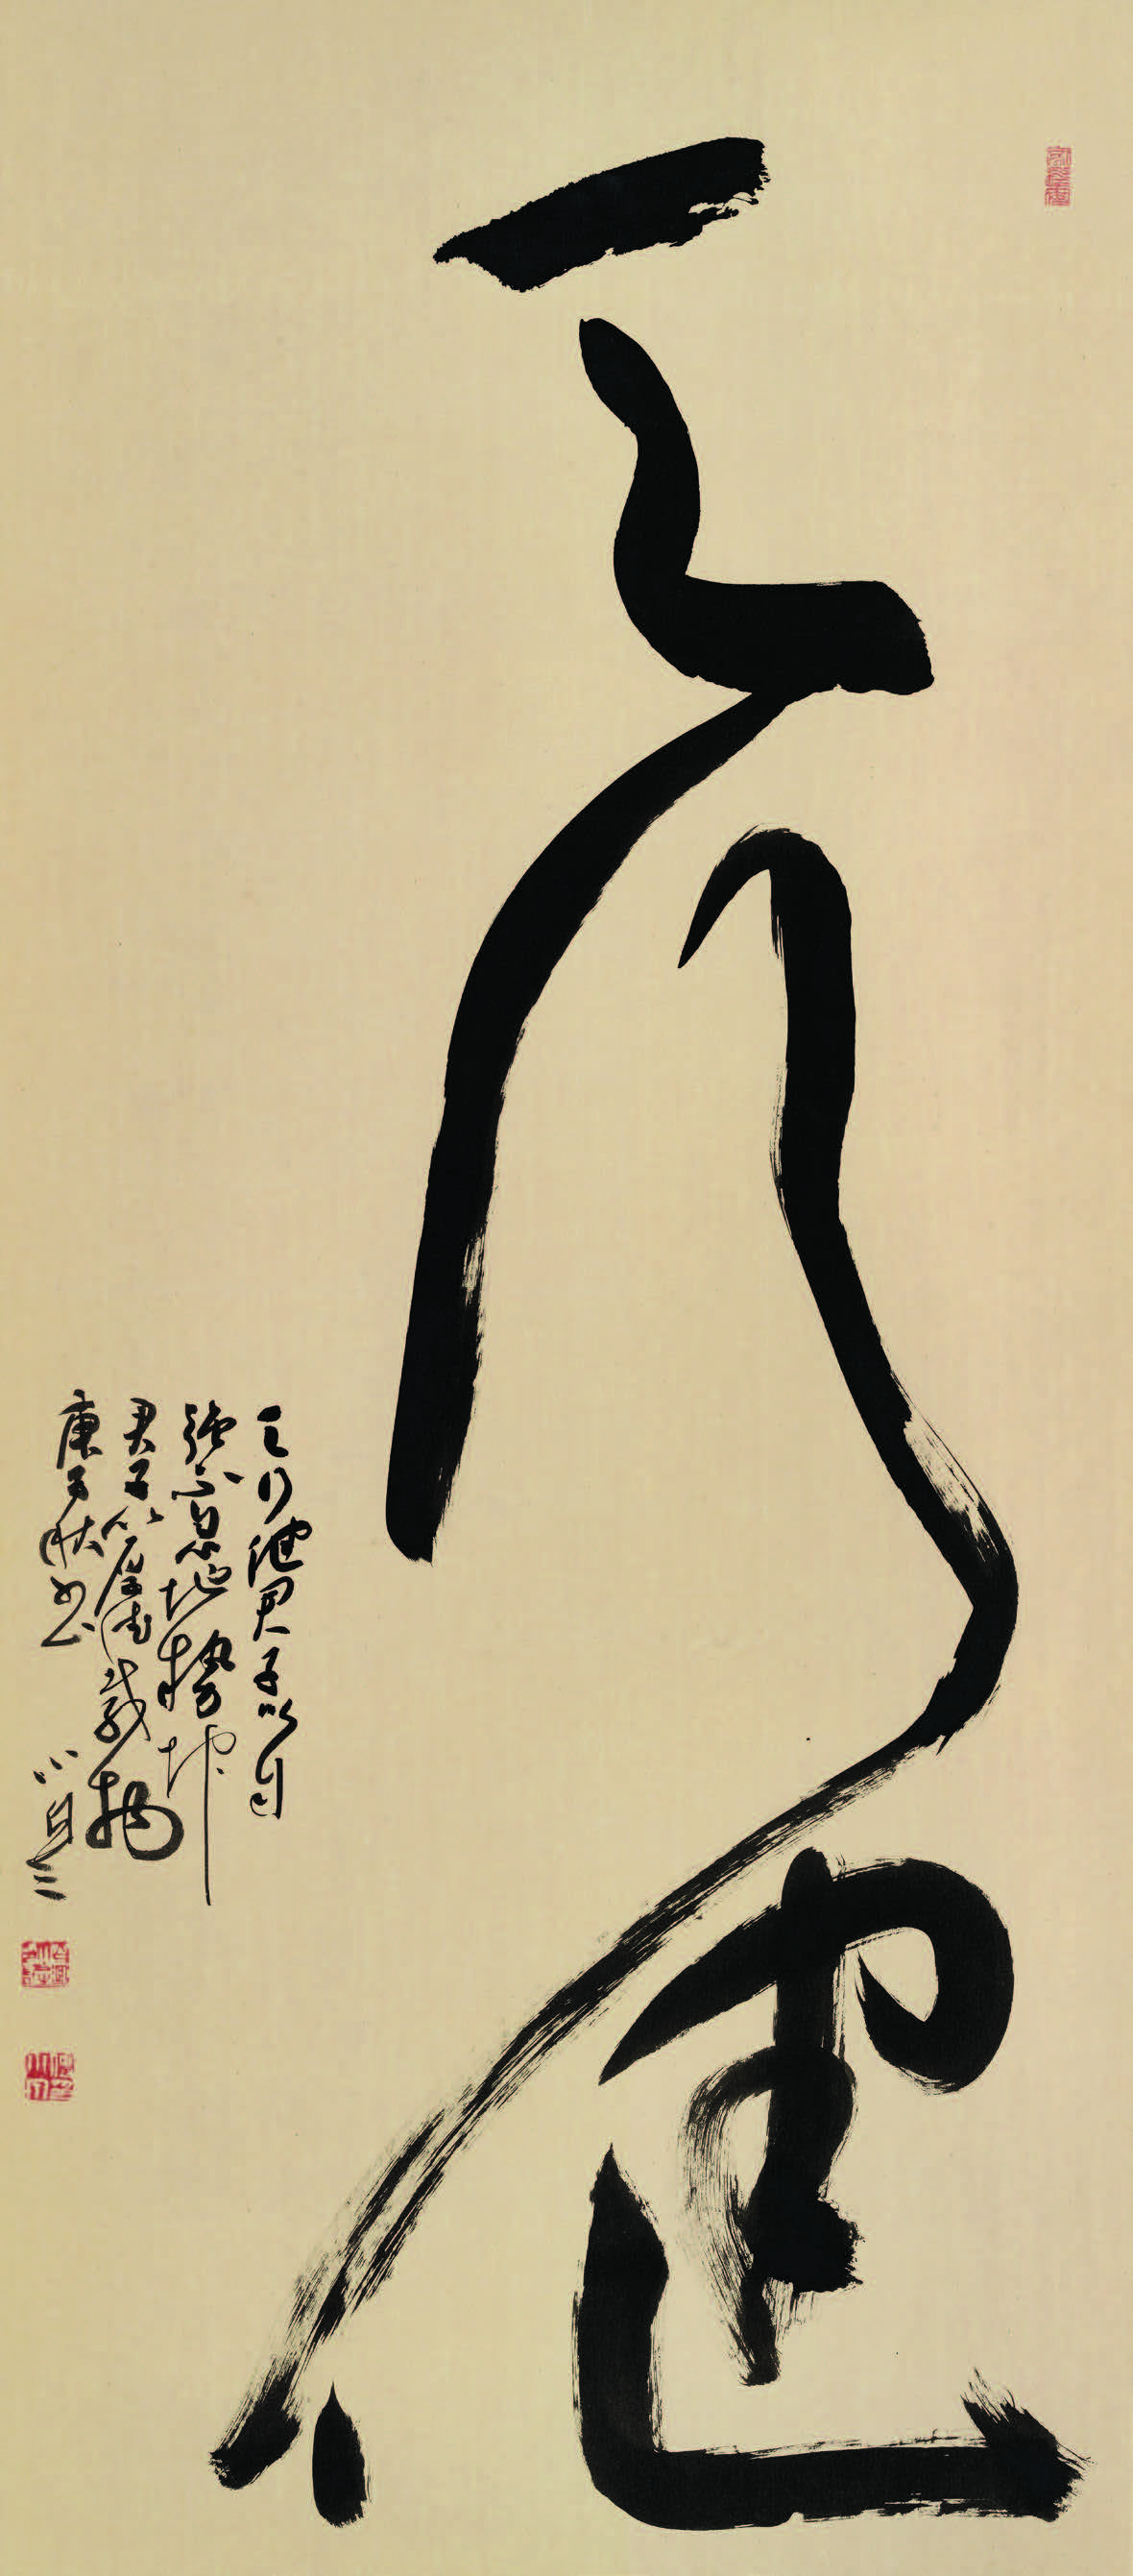 天行健
天行健君子以自
強不息地勢坤
君子以厚德載物
庚子秋書